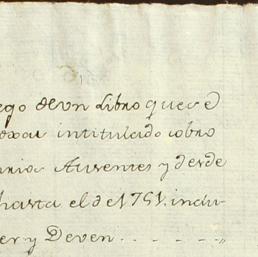 ego de un Libro que se
dexa intitulado cobro
Ausentes y desde
hasta el de 1751. inclu
er y Deven . . . . . „